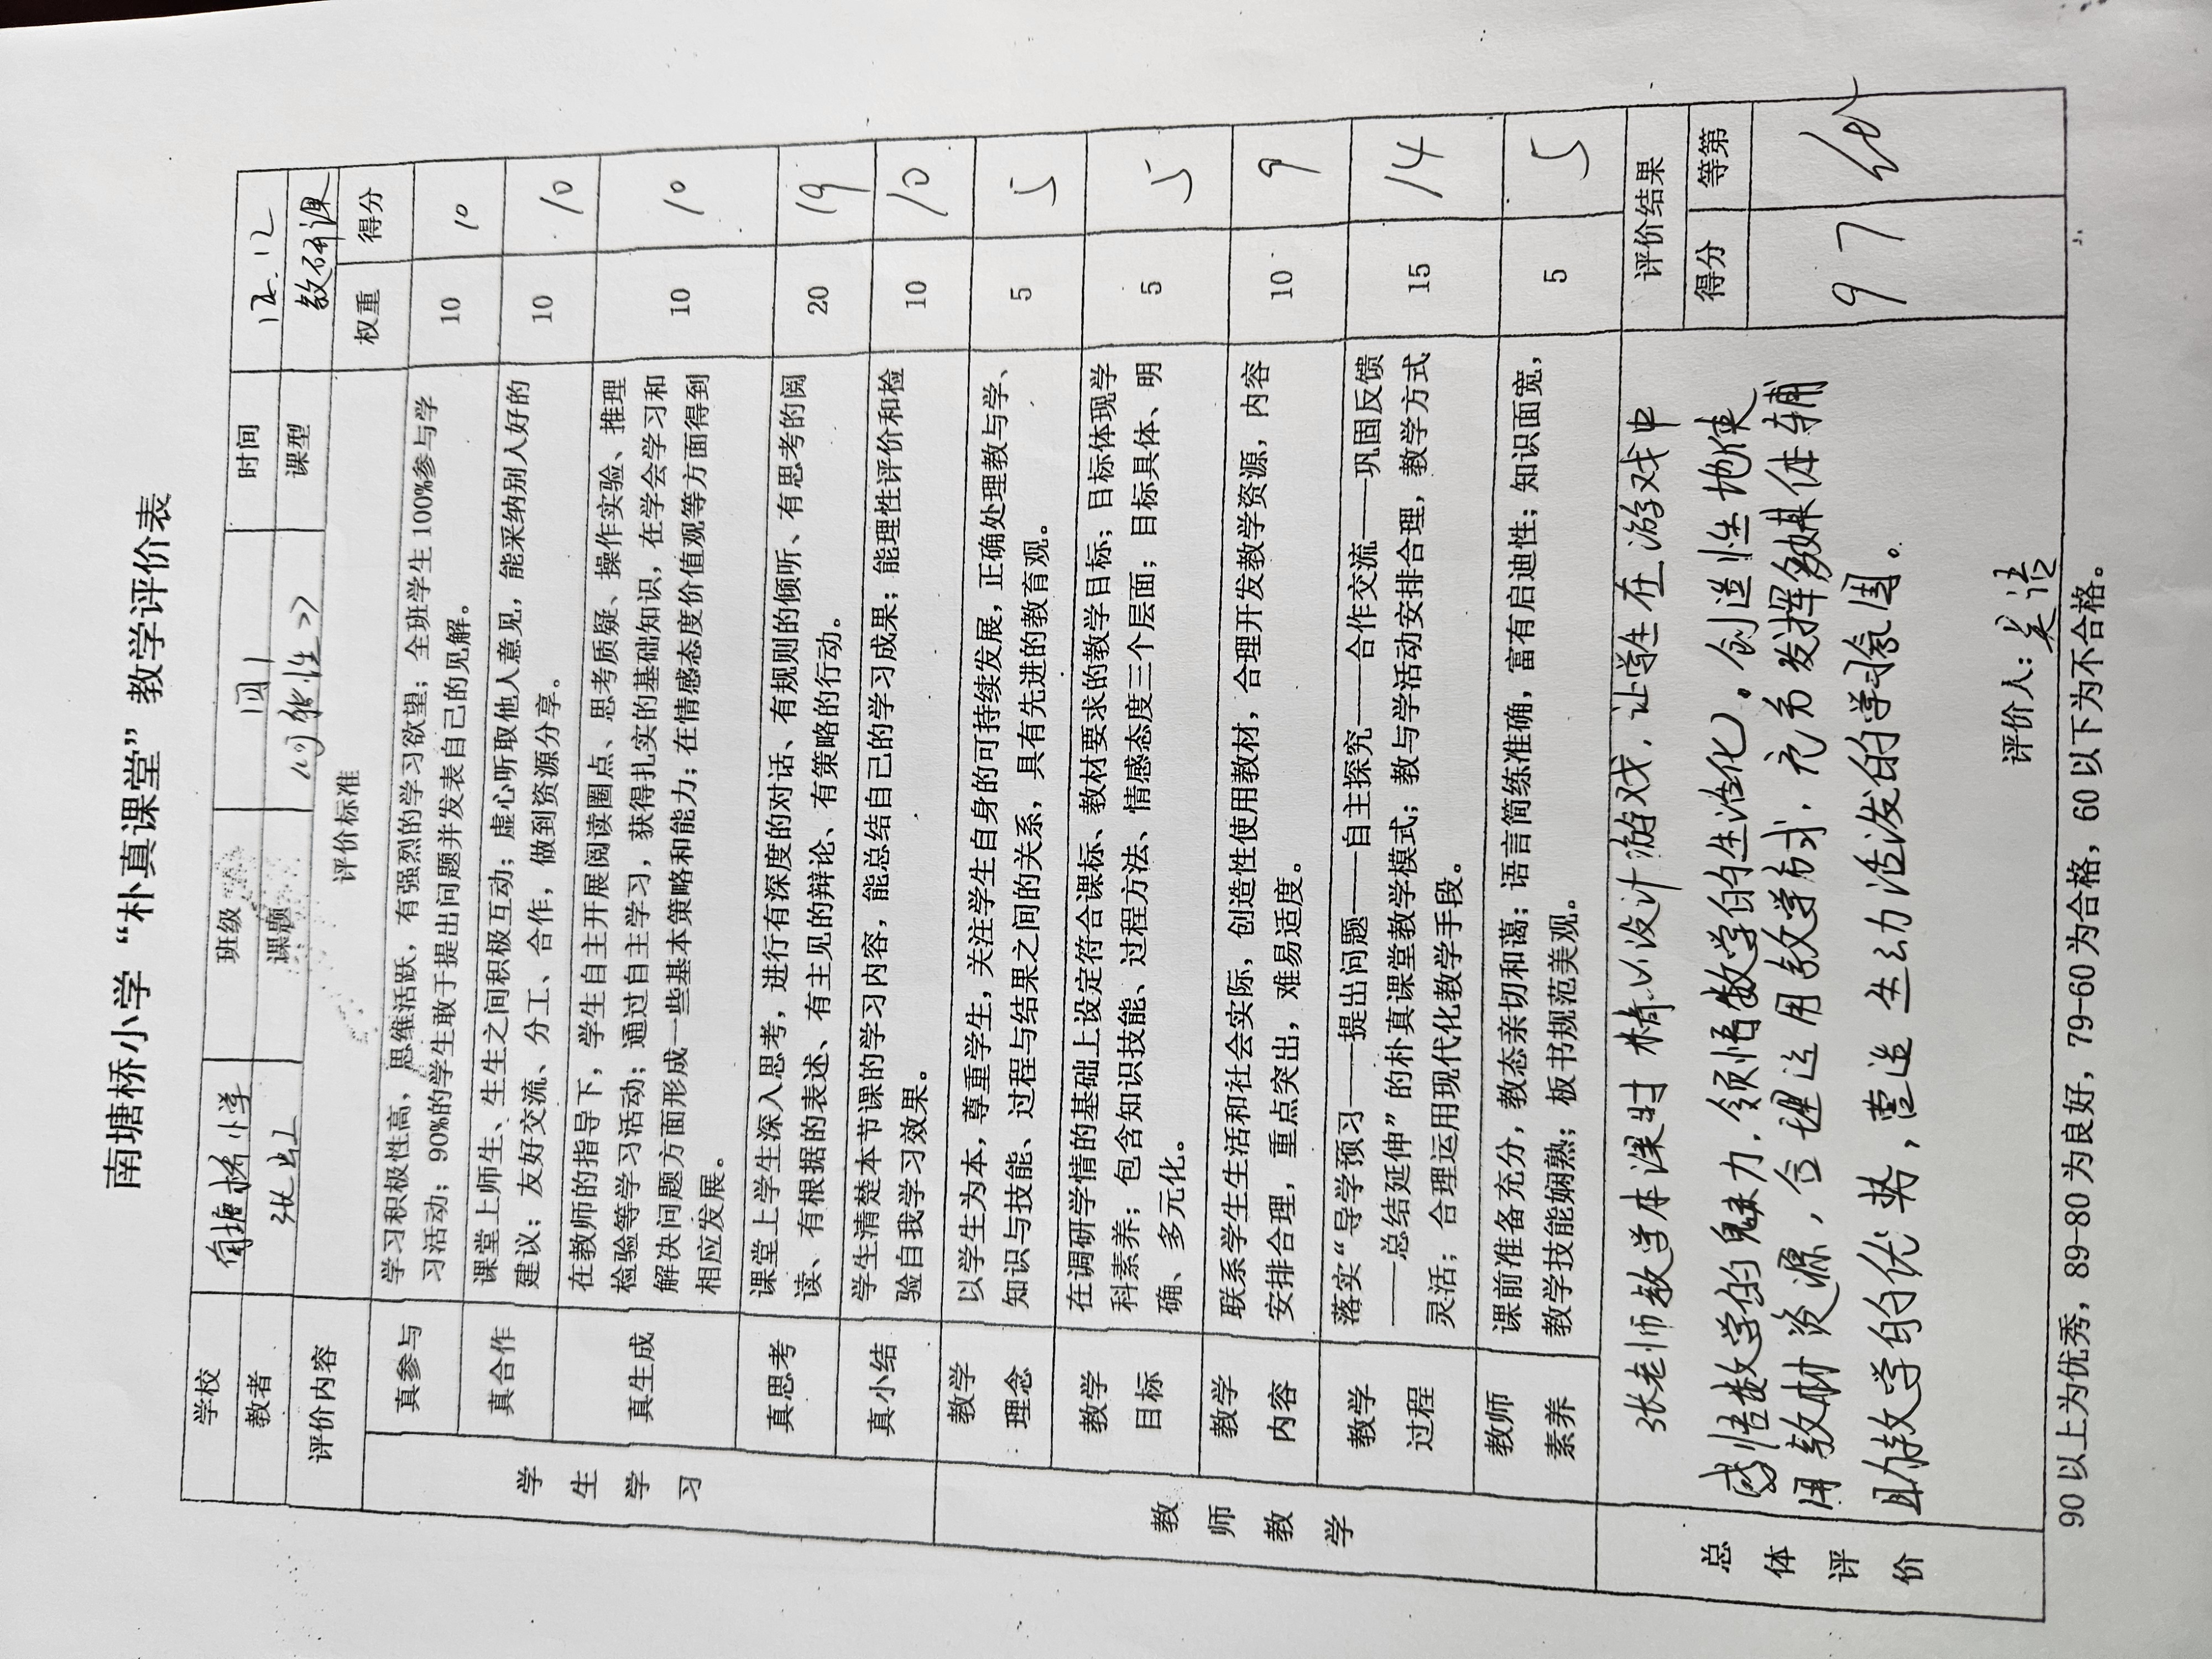 南塘桥小学“朴真课堂”教学评价表
学校 南塘桥小学 班级 四1 时间 12.12
教者 张 课题 《可能性》 课型 教研课
评价内容 评价标准 权重 得分
学生学习
真参与 学习积极性高，思维活跃，有强烈的学习欲望；全班学生100%参与学 10 10
习活动；90%的学生敢于提出问题并发表自己的见解。
真合作 课堂上师生、生生之间积极互动；虚心听取他人意见，能采纳别人好的 10 10
建议；友好交流、分工、合作，做到资源分享。
真生成 在教师的指导下，学生自主开展阅读圈点、思考质疑、操作实验、推理 10 10
检验等学习活动；通过自主学习，获得扎实的基础知识，在学会学习和
解决问题方面形成一些基本策略和能力；在情感态度价值观等方面得到
相应发展。
真思考 课堂上学生深入思考，进行有深度的对话、有规则的倾听、有思考的阅 20 19
读、有根据的表述、有主见的辩论、有策略的行动。
真小结 学生清楚本节课的学习内容，能总结自己的学习成果；能理性评价和检 10 10
验自我学习效果。
教师教学
教学理念 以学生为本，尊重学生，关注学生自身的可持续发展，正确处理教与学、 5 5
知识与技能、过程与结果之间的关系，具有先进的教育观。
教学目标 在调研学情的基础上设定符合课标、教材要求的教学目标；目标体现学 5 5
科素养；包含知识技能、过程方法、情感态度三个层面；目标具体、明
确、多元化。
教学内容 联系学生生活和社会实际，创造性使用教材，合理开发教学资源，内容 10 9
安排合理，重点突出，难易适度。
教学过程 落实“导学预习——提出问题——自主探究——合作交流——巩固反馈 15 14
——总结延伸”的朴真课堂教学模式；教与学活动安排合理，教学方式
灵活；合理运用现代化教学手段。
教师素养 课前准备充分，教态亲切和蔼；语言简练准确，富有启迪性；知识面宽， 5 5
教学技能娴熟；板书规范美观。
总体评价
张老师教学本课时精心设计游戏，让学生在游戏中
感悟数学的魅力，领悟数学的生活化。创造性地使
用教材资源，合理运用教学方式，充分发挥多媒体辅
助教学的优势，营造生动活泼的学习氛围。
评价人：吴洁
评价结果
得分 等第
97 优
90以上为优秀，89-80为良好，79-60为合格，60以下为不合格。